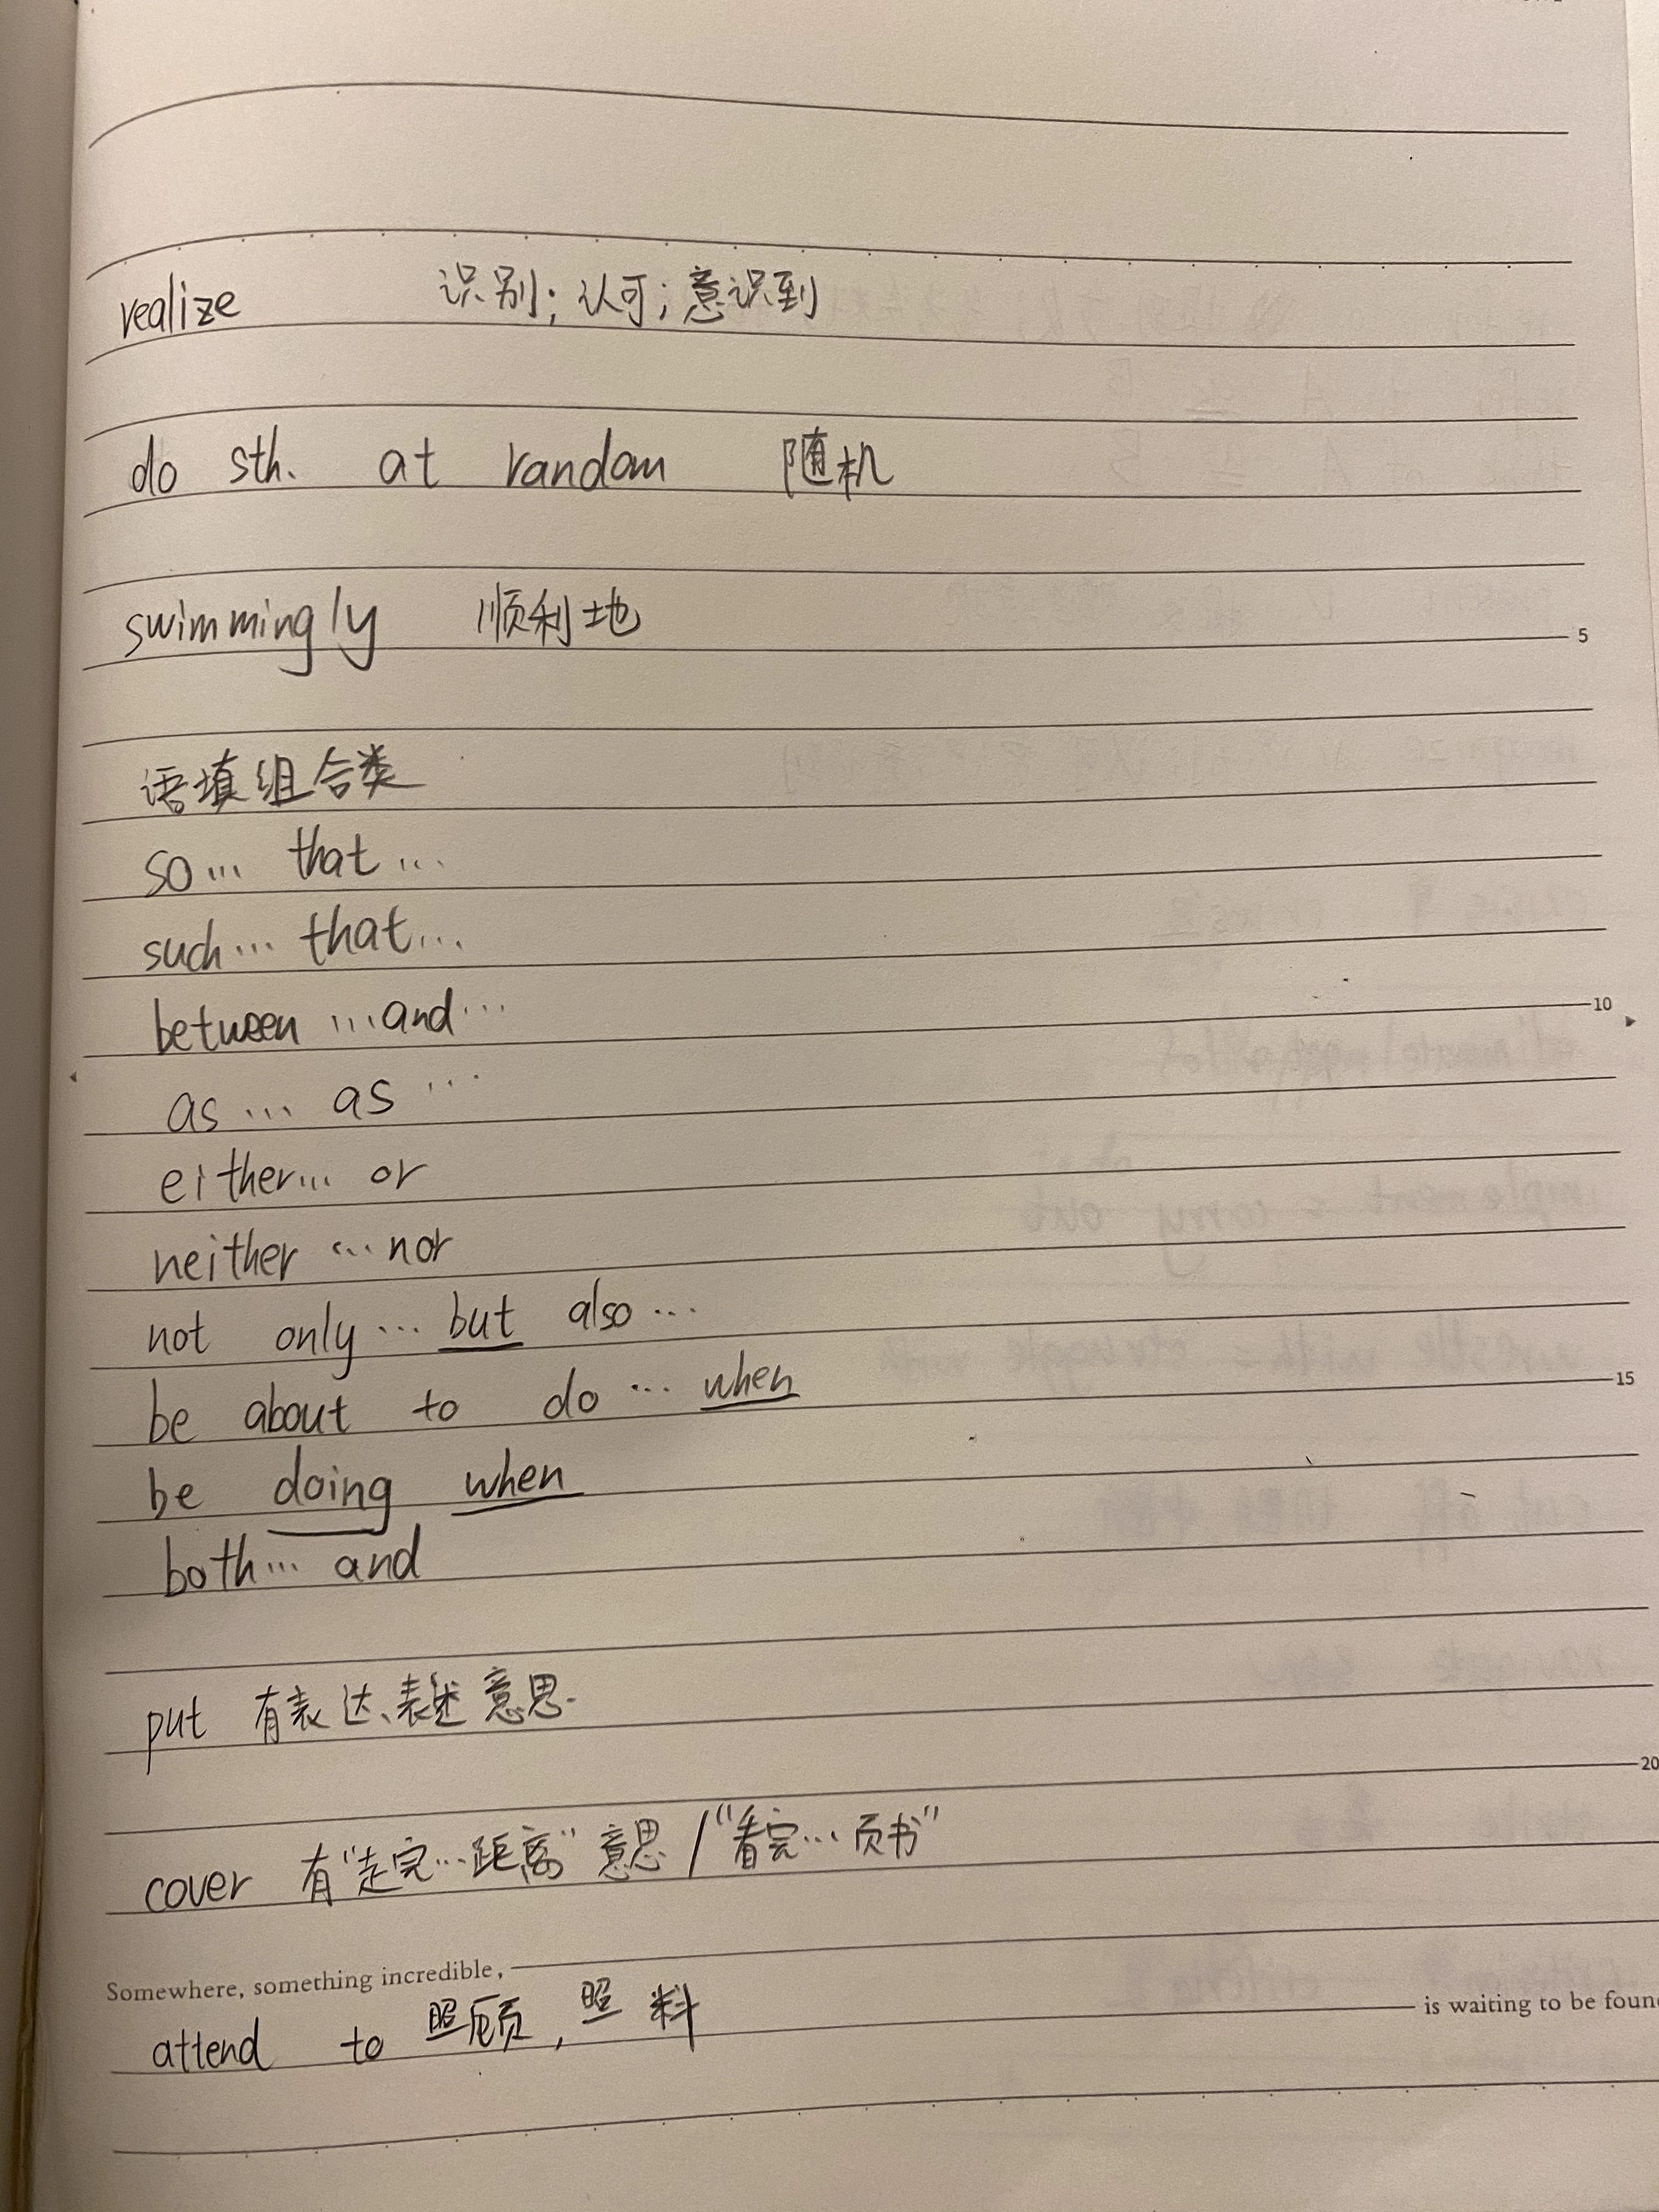 realize 识别；认可；意识到
do sth. at randam 随机
swimmingly 顺利地
5
语填组合类
so... that...
such... that...
between ... and...
10
as ... as ...
either... or
neither ... nor
not only ... but also ...
be about to do ... when
15
be doing when
both ... and
put 有表达、表述意思.
cover 有"走完...距离"意思 / "看完...页书"
20
Somewhere, something incredible, is waiting to be foun
attend to 照顾, 照料